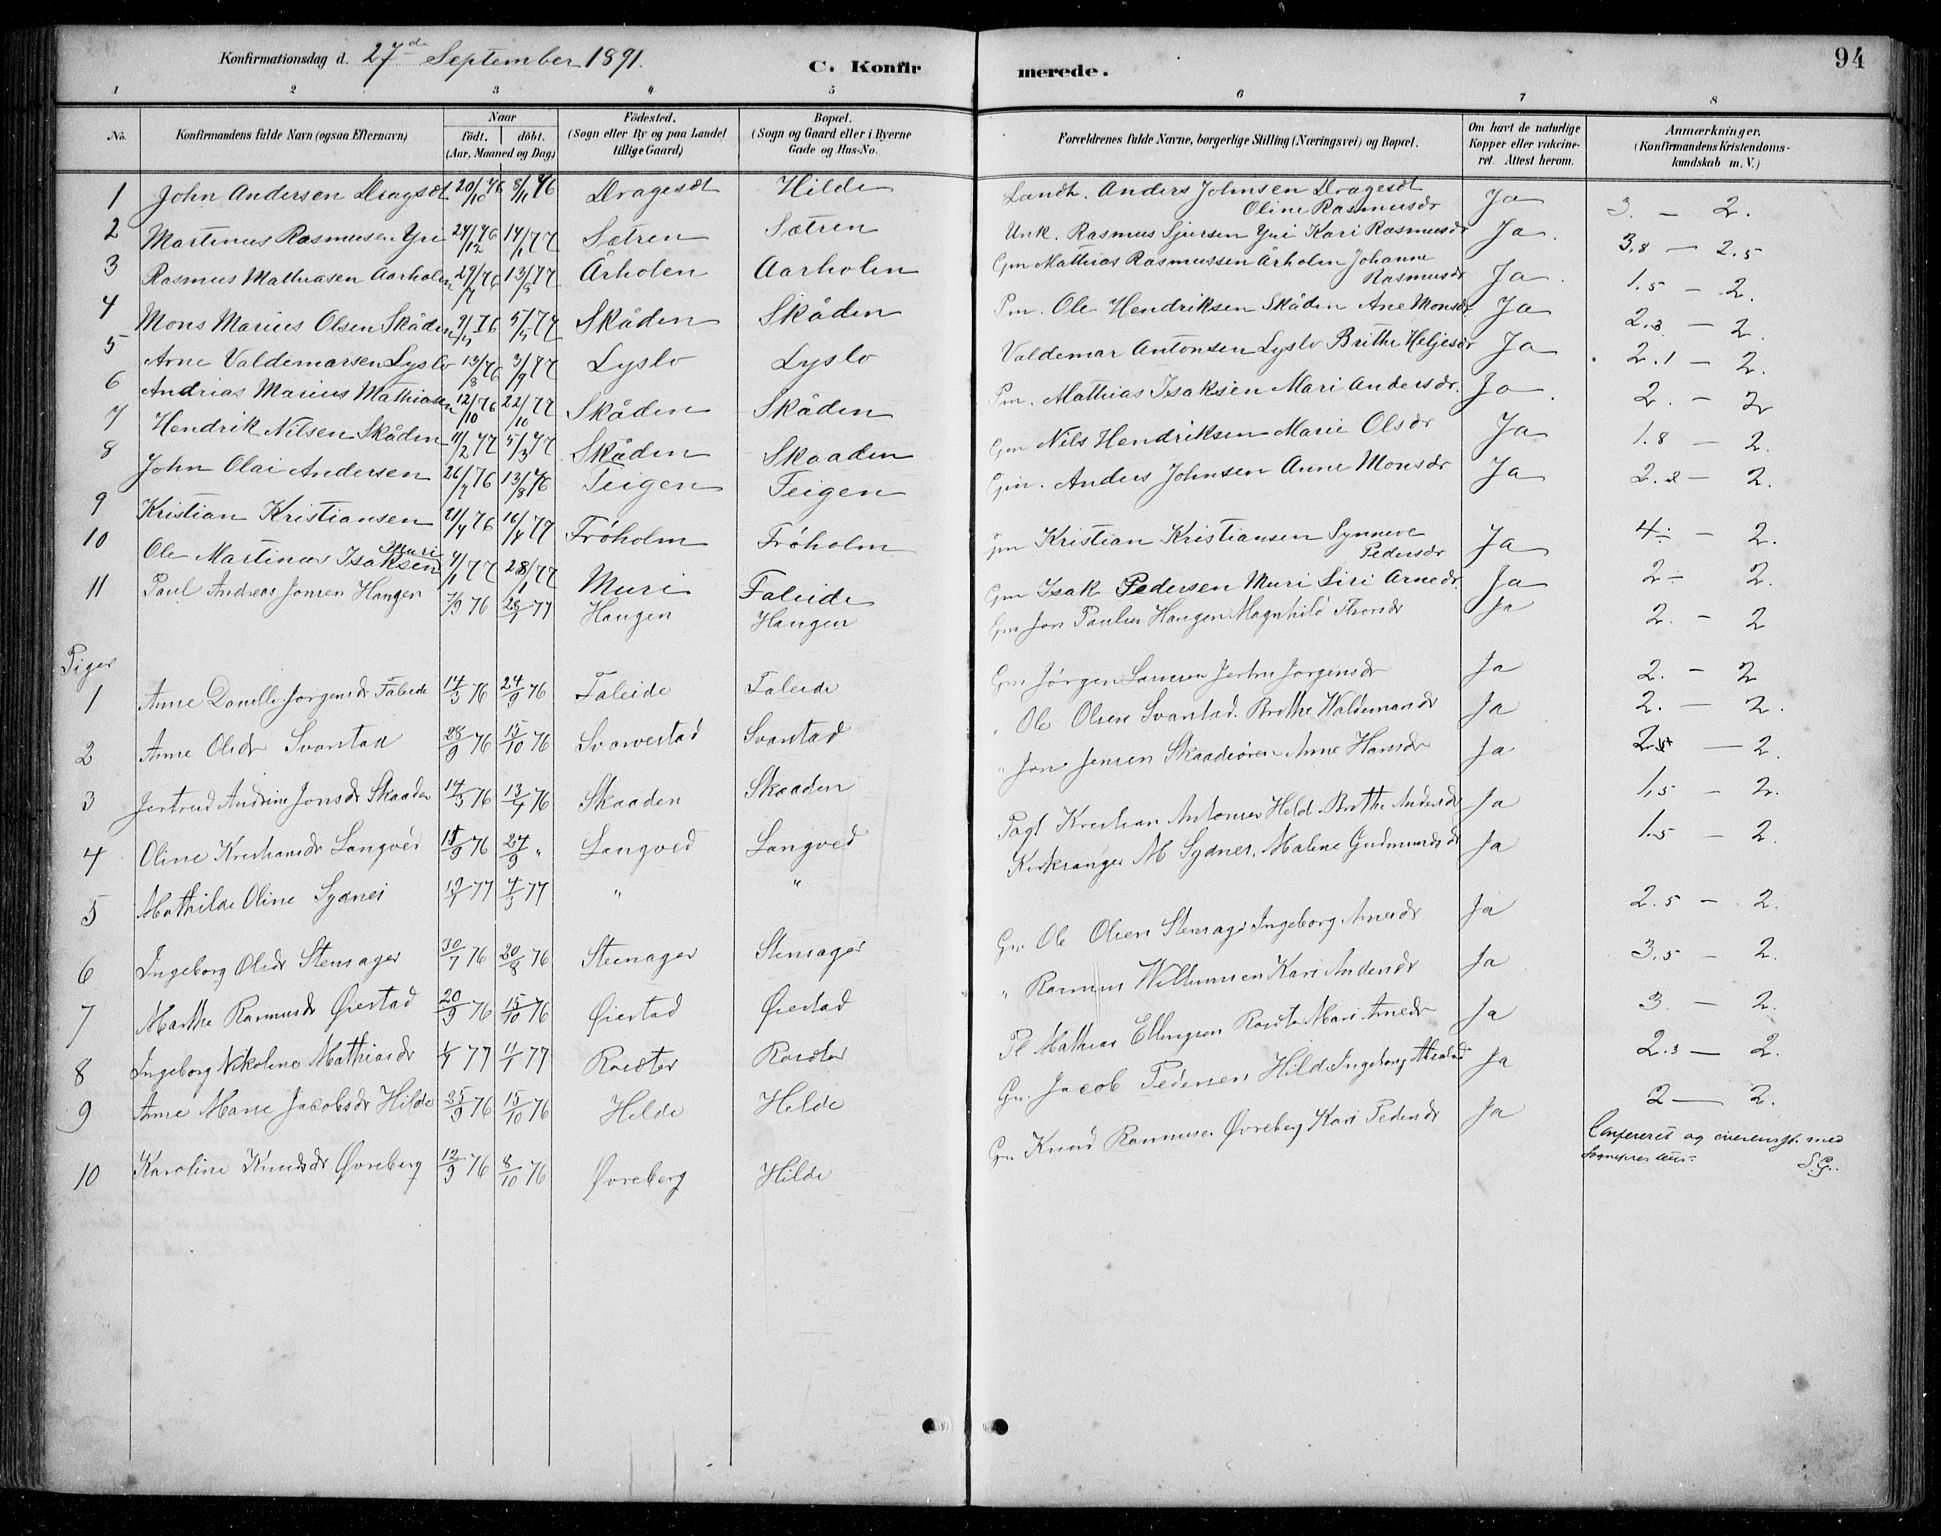 Konfirmationsdag d. 27de September 1891.
C. Konfir merede. 94
1 2 3 4 5 6 7 8
No. Konfirmandens fulde Navn (ogsaa Efternavn) Naar födt. döbt. (Aar, Maaned og Dag) Födested. (Sogn eller By og paa Landet tillige Gaard) Bopæl. (Sogn og Gaard eller i Byerne Gade og Hus-No. Forældrenes fulde Navne, borgerlige Stilling (Næringsvei) og Bopæl. Om havt de naturlige Kopper eller vakcineret. Attest herom. Anmærkninger. (Konfirmandens Kristendomskundskab m. V.)
1 John Andersen Dragsdt 20/10 76 5/11 76 Dragesdt Hilde Landh. Anders Johnsen Dragesdt Oline Rasmusdr Ja 3. — 2.
2 Martinus Rasmusen Yri 24/12 76 14/1 77 Sætren Sætren Unk. Rasmus Sjursen Yri Kari Rasmusdr Ja. 3.8 — 2.5
3 Rasmus Mathiasen Aarholen 29/7 76 13/8 77 Årholen Aarholen Gm Mathias Rasmussen Årholen Johanne Rasmusdr Ja. 1.5 — 2.
4 Mons Marius Olsen Skåden 76 77 Skåden Skåden Pm. Ole Hendriksen Skåden Ane Monsdr Ja 2.3 — 2.
5 Arne Valdemarsen Lyslo 13/8 76 3/9 77 Lyslo Lyslo Valdemar Antonsen Lyslo Brithe Heljesdr Ja 2.1 — 2.
6 Andrias Marius Mathiasen 12/10 76 22/10 77 Skåden Skåden Pm. Mathias Isaksen Mari Andersdr. Ja. 2. — 2
7 Hendrik Nilsen Skåden 11/2 77 5/3 77 Skåden Skaaden Gm Nils Hendriksen Marie Olsdr Ja 1.8 — 2.
8 John Olai Andersen 26/7 76 13/8 76 Teigen Teigen Gm. Anders Johnsen Anne Monsdr Ja 2.2 — 2.
9 Kristian Kristiansen 21/4 76 16/4 77 Fröholm Fröholm gm Kristian Kristiansen Synneve Pedersdr Ja 4÷ — 2.
10 Ole Martinus Isaksen Muri 4/1 77 28/1 77 Muri Faleide Gm Isak Pedersen Muri Siri Arnedr. Ja 2÷ 2.
11 Paul Andreas Jonsen Haugen 7/9 76 77 Haugen Haugen Gm Jon Paulsen Haugen Magnhild Thorsdr Ja 2. — 2
Piger
1 Anne Danielle Jørgensdr Faleide 14/3 76 24/9 76 Faleide Faleide Gm Jørgen Larsen Jertru Jørgensdr Ja 2. — 2
2 Anne Olsdr Svarstad 28/9 76 15/10 76 Svarvestad Svarstad " Ole Olsen Svarstad. Brithe Waldemarsdr Ja 2. — 2.
3 Jertrud Andrine Jonsdr Skaaden 14/3 76 13/4 76 Skaaden Skaaden " Jon Jensen Skaadeøren Anne Hansdr Ja — 2.
4 Oline Kristiansdr Langved 76 24/9 " Langved Langved Pagt Kristian Antonsen Hilde Brithe Andersdr Ja 1.5 — 2.
5 Mathilde Oline Sydnes 77 77 " " Kirkesanger M Sydnes. Malene Gudmundsdr Ja 1.5 — 2.
6 Ingeborg Olsdr Stensager 30/7 76 20/8 76 Steenager Stensager Gm Ole Olsen Stensager Ingeborg Arnesdr Ja 2.5 — 2.
7 Marthe Rasmusdr Øiestad 20/9 76 15/10 76 Øiestad Øiestad " Rasmus Willumsen Kari Andersdr Ja 3.5 — 2.
8 Ingeborg Nikoline Mathiasdr 77 77 Rosdter Rosdter Pl Mathias Ellingsen Rosdter Mari Arnedr Ja 3. — 2.
9 Anne Marie Jacobsdr Hilde 25/9 76 15/10 76 Hilde Hilde Gm. Jacob Pedersen Hilde Ingeborg Ja 2.3 — 2.
10 Karoline Knudsdr Øvreberg 12/9 76 8/10 76 Øvreberg Hilde Gm Knud Rasmusen Øvreberg Kari Pedersdr Ja 2 — 2.
Confereret og overensst. med
Sognepresten: S.G..